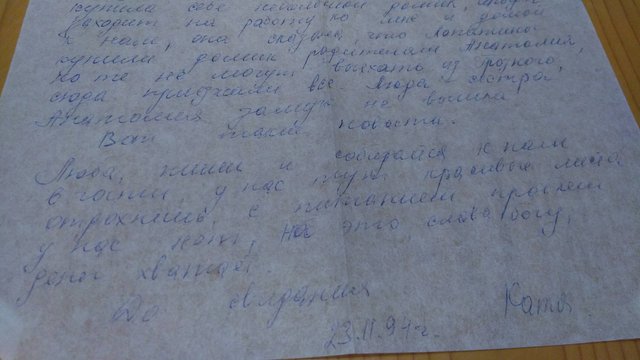 купили себе небольшой домик, Люда
находит на работу ко мне и домой
к нам, она сказала, что Лопатины
купили домик родителям Анатолия,
но те не могут выехать из Грозного,
сюда приезжали все. Люда сестра
Анатолия замуж не вышла.
Вот такие новости.
Люба, пиши и собирайся к нам
в гости, у нас тут красивые места,
отдохнешь, с питанием проблем
у нас нет, на это, слава богу,
денег хватает.
До свидания
Катя.
23.11.94 г.